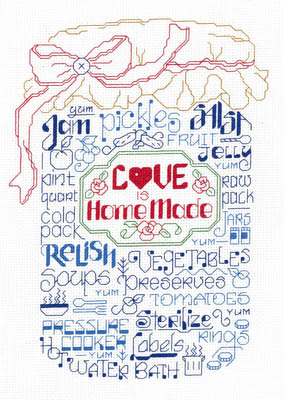 yum
Jam pickles SALSA
FRUIT
JELLY
YUM
LOVE
IS
HomeMade
pint
quart
cold
pack
raw
pack
JARS
YUM
RELISH
VEGETABLES
YUM
Soups Preserves
YUM TOMATOES
PRESSURE
COOKER
Sterilize
YUM
Labels
rings
YUM
HOT
WATER BATH